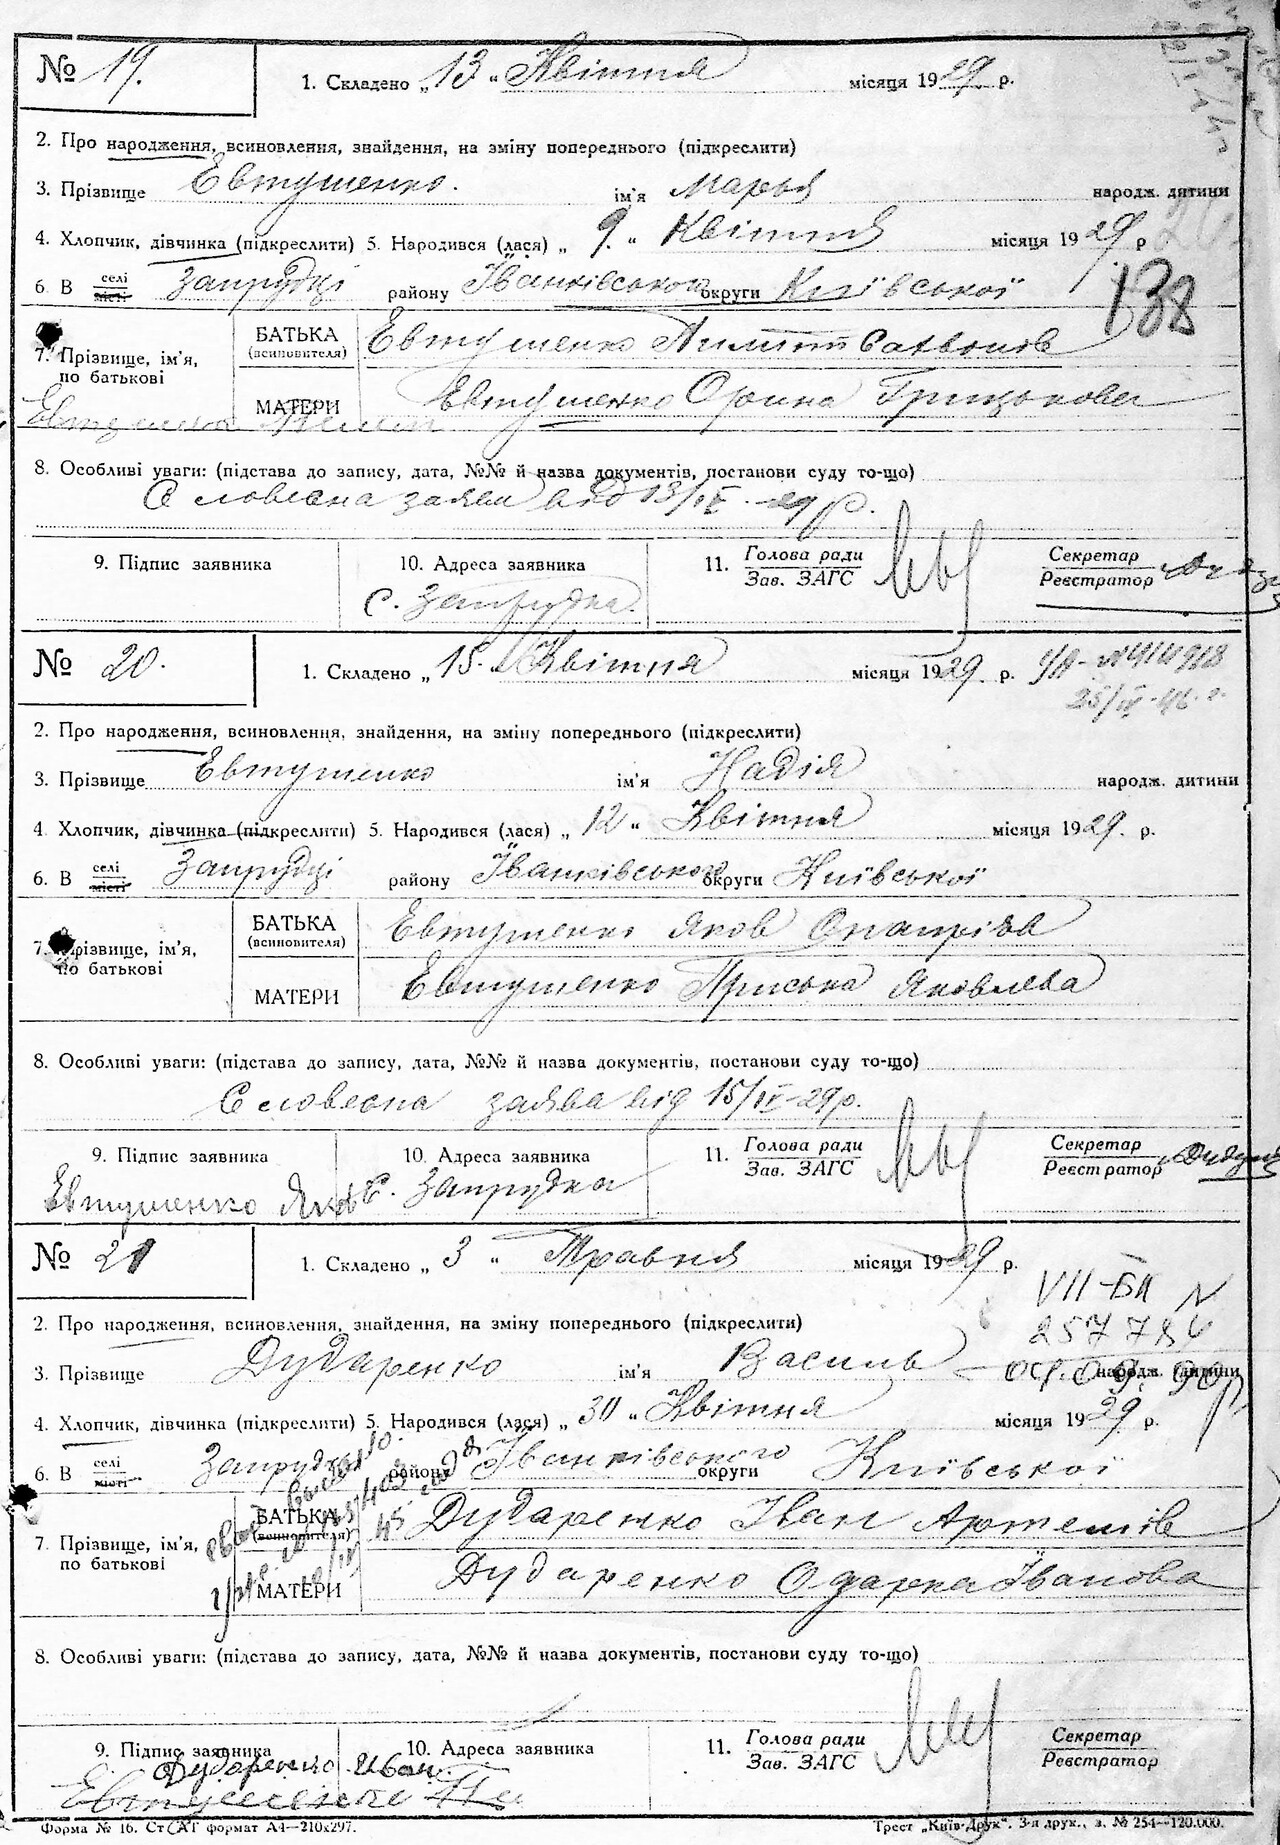 № 19. 1. Складено „ 13 “ Квітня місяця 1929. р.
2. Про народження, всиновлення, знайдення, на зміну попереднього (підкреслити)
3. Прізвище Евтушенко. ім'я Марья народж. дитини
4. Хлопчик, дівчинка (підкреслити) 5. Народився (лася) „ 9. “ Квітня місяця 1929 р
138
6. В селі місті Запрудці району Іванківського округи Київської
7. Прізвище, ім'я, по батькові
БАТЬКА (всиновителя) Евтушенко Пилип
МАТЕРИ Евтушенко Орина Грицькова
Евтушенко Пилип
8. Особливі уваги: (підстава до запису, дата, №№ й назва документів, постанови суду то-що)
Словесна заява від 13/IV - 29 р.
9. Підпис заявника 10. Адреса заявника 11. Голова ради Зав. ЗАГС Секретар Реєстратор
с. Запрудка.
№ 20. 1. Складено „ 15 “ Квітня місяця 1929. р.
25/IV-46 г.
2. Про народження, всиновлення, знайдення, на зміну попереднього (підкреслити)
3. Прізвище Евтушенко ім'я Надія народж. дитини
4. Хлопчик, дівчинка (підкреслити) 5. Народився (лася) „ 12 “ Квітня місяця 1929. р.
6. В селі місті Запрудці району Іванківського округи Київської
7. Прізвище, ім'я, по батькові
БАТЬКА (всиновителя) Евтушенко Яков
МАТЕРИ Евтушенко Приська Яковлева
8. Особливі уваги: (підстава до запису, дата, №№ й назва документів, постанови суду то-що)
Словесна заява від 15/IV-29 р.
9. Підпис заявника 10. Адреса заявника 11. Голова ради Зав. ЗАГС Секретар Реєстратор
Евтушенко Яков с. Запрудка
№ 21 1. Складено „ 3 “ Травня місяця 1929 р.
VII-БК N
2. Про народження, всиновлення, знайдення, на зміну попереднього (підкреслити)
257784
3. Прізвище Дударенко ім'я Василь народж. дитини
4. Хлопчик, дівчинка (підкреслити) 5. Народився (лася) „ 30 “ Квітня місяця 1929 р.
6. В селі місті Запрудка району Іванківського округи Київської
7. Прізвище, ім'я, по батькові
БАТЬКА (всиновителя) Дударенко Іван Артемів
МАТЕРИ Дударенко Одарка Іванова
8. Особливі уваги: (підстава до запису, дата, №№ й назва документів, постанови суду то-що)
9. Підпис заявника 10. Адреса заявника 11. Голова ради Зав. ЗАГС Секретар Реєстратор
Дударенко Иван
Форма № 16. Ст. АТ формат А4—210х297. Трест „Київ-Друк“. 3-я друк., з. № 254—120.000.